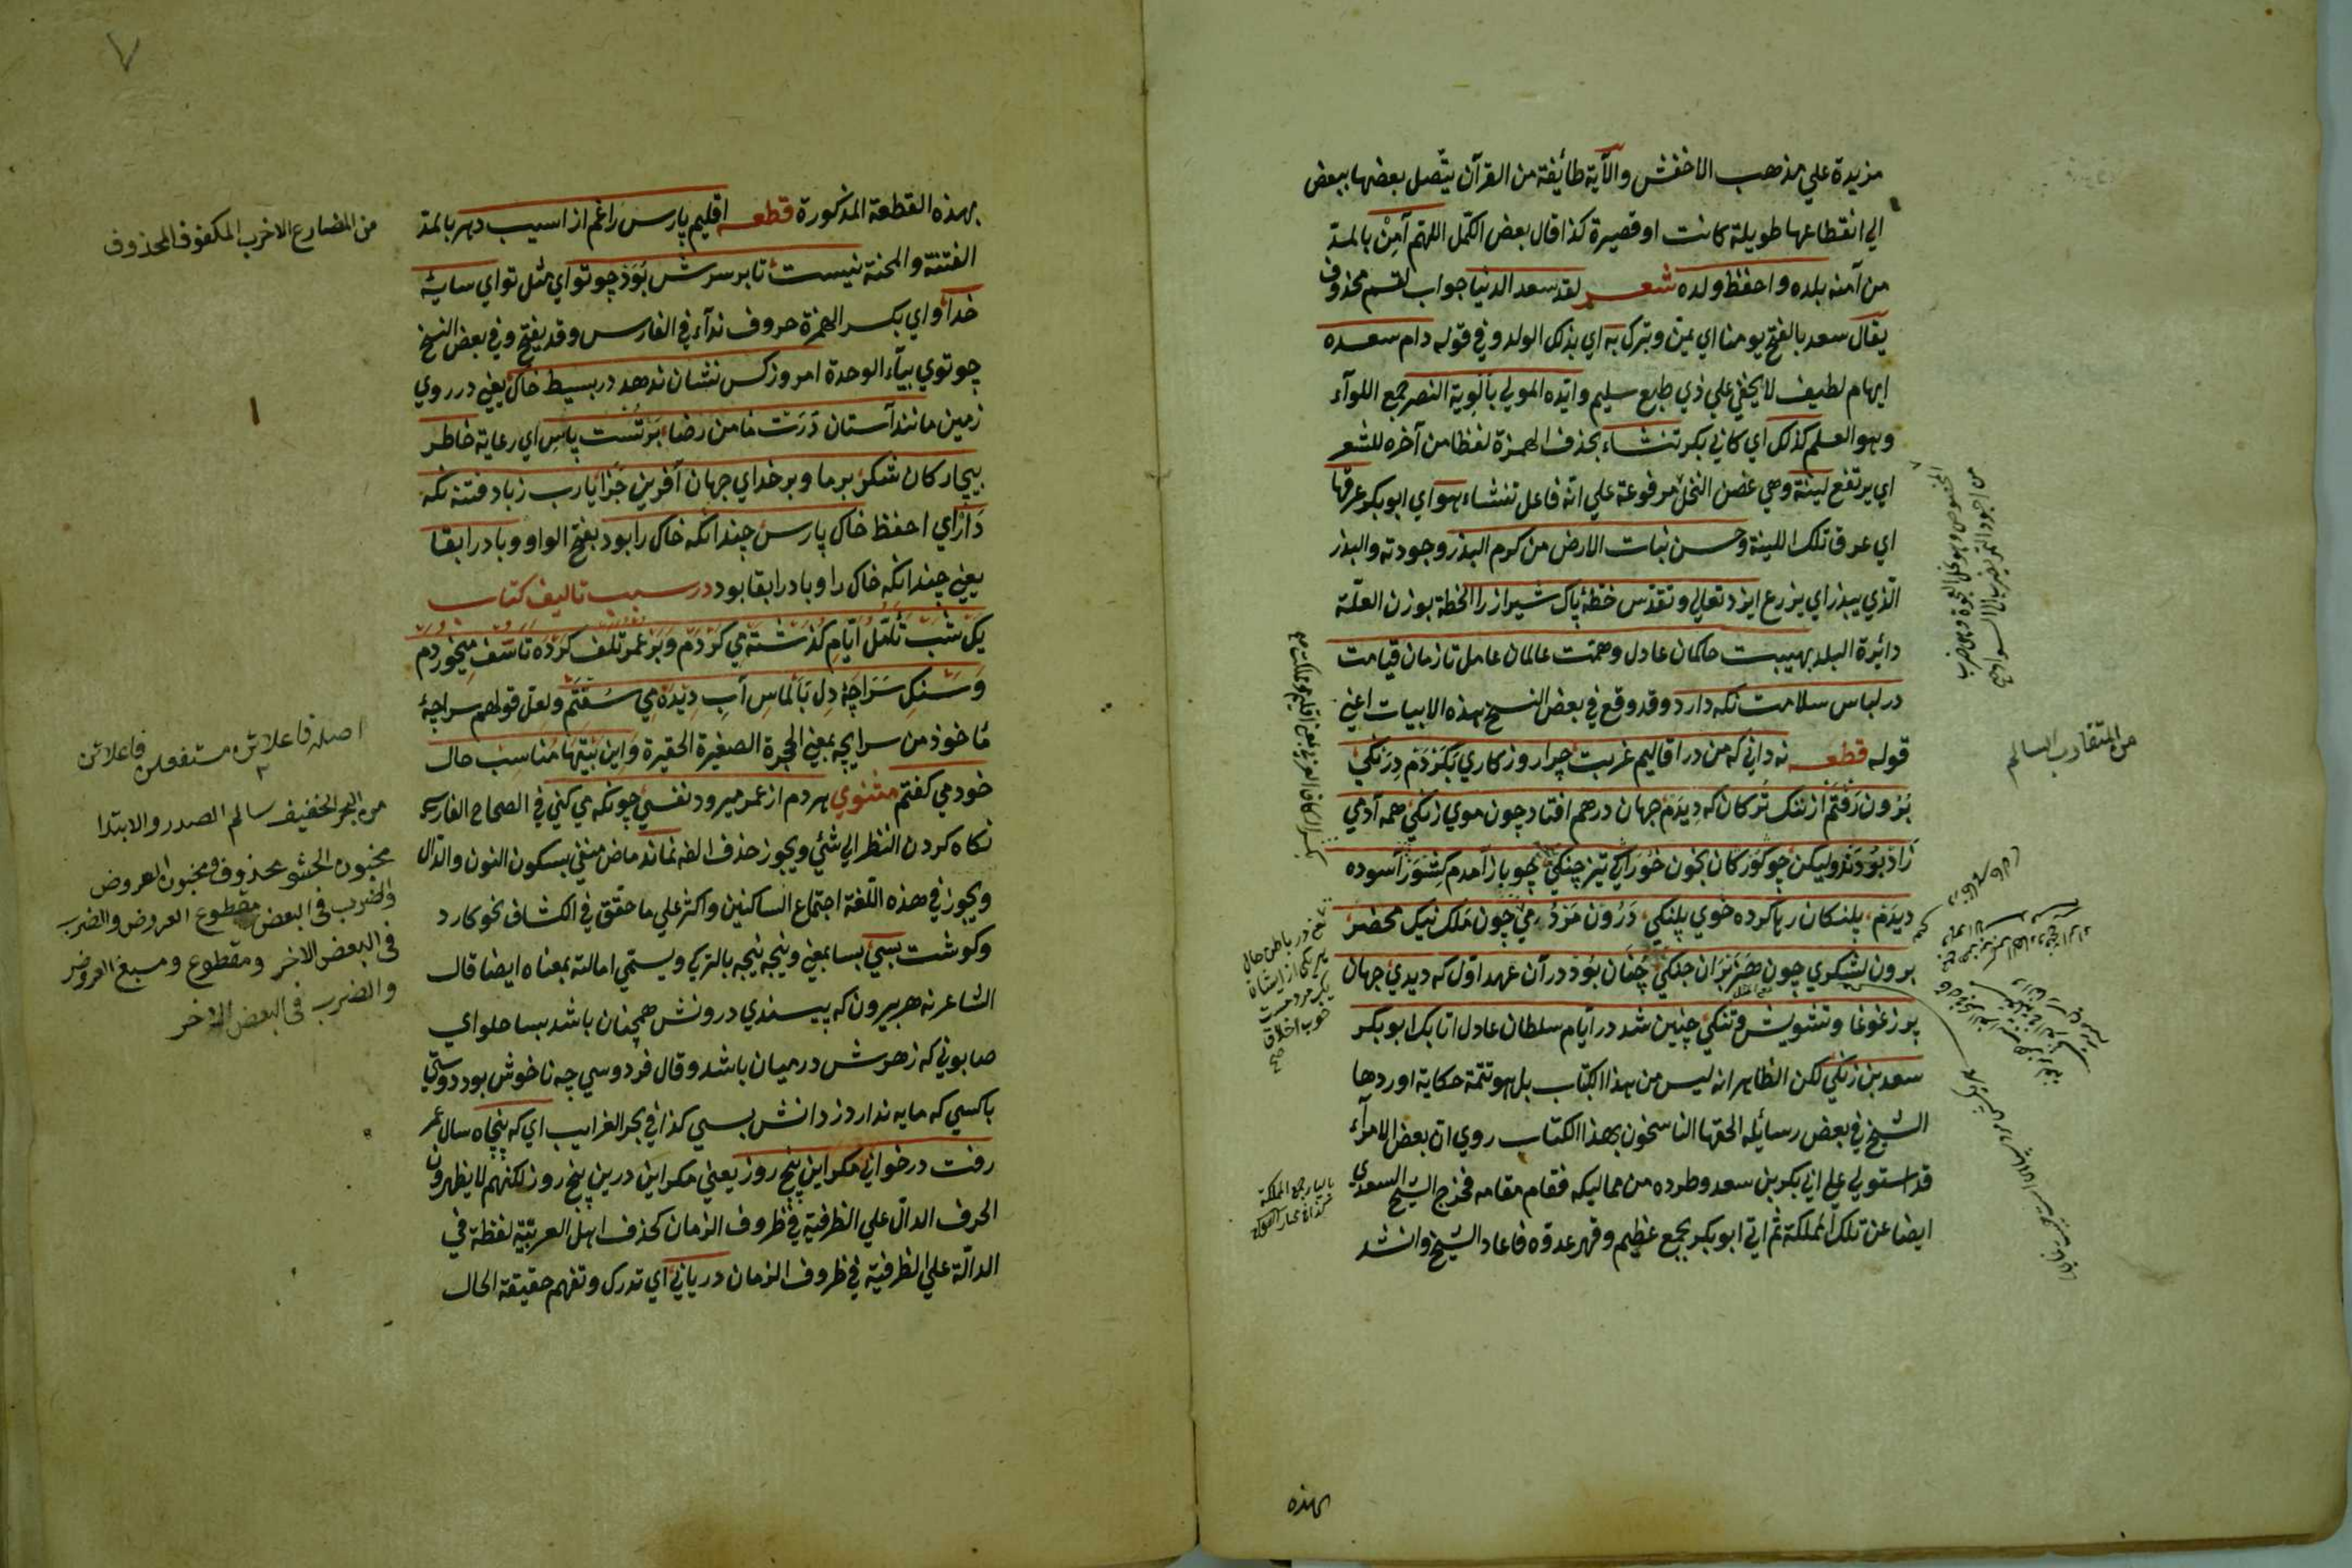 مزيدة علي مذهب الاخفش والآية طائفة من القرآن يتصل بعضها ببعض
الي انقطاعها طويلة كانت او قصيرة كذا قال بعض الكمل اللهم آمن بالمد
من آمنه بلده واحفظ ولده شعر لقد سعد الدنيا جواب لقسم محذوف
يقال سعد بالفتح يومنا اي يمن وتبرك به اي بذلك الولد وفي قوله دام سعده
ايهام لطيف لا يخفي علي ذي طبع سليم وايده المولي بالوية النصر جمع اللوآء
وهو العلم كذلك اي كابي بكر تنشاء بحذف الهمزة لفظا من آخره للشعر
اي يرتفع لينة وهي غصن النخل مرفوعة علي انه فاعل تنشاء هو اي ابو بكر عرقها
اي عرق تلك اللينة وحسن نبات الارض من كرم البذر وجودته والبذر
الذي يبذر اي يزرع ايزد تعالي وتقدس خطه پاك شيراز را الخطة بوزن العلة
دائرة البلد بهيبت حاكمان عادل وهمت عالمان عامل تا زمان قيامت
در لباس سلامت نكه دارد وقد وقع في بعض النسخ هذه الابيات اعني
قوله قطعه نه داني كه من در اقاليم غربت چرا روزكاري بكردم درنكي
برون رفتم از ننك تركان كه ديدم جهان درهم افتاد چون موي زنكي همه آدمي
زاد بودند وليكن چو كوركان بخون خوراكي تيز چنكي چو باز آمدم كشور آسوده
ديدم پلنكان رها كرده خوي پلنكي درون مردمي چون ملك نيك محضر
برون لشكري چون هزبران جنكي چنان بود در آن عهد اول كه ديدي جهان
پر ز غوغا وتشويش وتنكي چنين شد در ايام سلطان عادل اتابك ابو بكر
سعد بن زنكي لكن الظاهر انه ليس من هذا الكتاب بل هو تتمة حكاية اوردها
الشيخ في بعض رسائله الحقها الناسخون بهذا الكتاب روي ان بعض الامرآء
قد استولي علي ابي بكر بن سعد وطرده من مماليكه فقام مقامه فخرج الشيخ السعدي
ايضا عن تلك المملكة ثم اتي ابو بكر بجمع عظيم وقهر عدوه فاعاد الشيخ وانشد
من المتقارب السالم
بهذه
٧
بهذه القطعة المذكورة قطعه اقليم پارس را غم از اسيب دهر بالمد
الفتنة والمحنة نيست تا بر سرش بود چو تو اي مثل تو اي سايه
خدا واي بكسر الهمزة حروف ندآء في الفارس وقد يفتح وفي بعض النسخ
چو توي بيآء الوحدة امروز كس نشان ندهد در بسيط خاك يعني در روي
زمين مانند آستان درت مامن رضاء بر تست پاس اي رعاية خاطر
بيچاركان شكر بر ما وبر خداي جهان آفرين جزا يارب ز باد فتنه نكه
دار اي احفظ خاك پارس چندانكه خاك را بود بفتح الواو وباد را بقا
يعني چندانكه خاك را وباد را بقا بود در سبب تاليف كتاب
يك شب تأمل ايام كذشته مي كردم وبر عمر تلف كرده تاسف ميخوردم
وسنك سراچه دل بالماس آب ديده مي سفتم ولعل قولهم سراجه
ماخوذ من سرايچه بمعني الحجرة الصغيرة الحقيرة واين بيتها مناسب حال
خود مي كفتم مثنوي هر دم از عمر ميرود نفسي چو نكه مي كني في الصحاح الفارسي
نكاه كردن النظر الي شئ ويجوز حذف الفه نماند ماض منفي بسكون النون والدال
ويجوز في هذه اللغة اجتماع الساكنين واكثر علي ما حقق في الكشاف نحو كارد
وكوشت بسي بسا بمعني ونيچه نيچه بالتركي ويستمي امالته بمعناه ايضا قال
الشاعر نه هر بيرون كه پسندي درونش همچنان باشد بسا حلواي
صابوني كه زهرش در ميان باشد وقال فردوسي چه ناخوش بود دوستي
با كسي كه مايه ندارد ز دانش بسي كذا في بحر الغرايب اي كه پنجاه سال عمر
رفت در خوابي مكر اين پنج روز يعني مكر اين درين پنج روز لكنهم لا يظهرون
الحرف الدال علي الظرفية في ظروف الزمان كحذف اهل العربية لفظة في
الدالة علي الظرفية في ظروف الزمان دريابي اي تدرك وتفهم حقيقة الحال
من المضارع الاخرب المكفوف المحذوف
اصله فاعلاتن مستفعلن فاعلاتن
من البحر الخفيف سالم الصدر والابتدا
مخبون الحشو محذوف ومخبون العروض
والضرب في البعض مقطوع العروض والضرب
في البعض الاخر ومقطوع ومسبغ العروض
والضرب في البعض الاخر